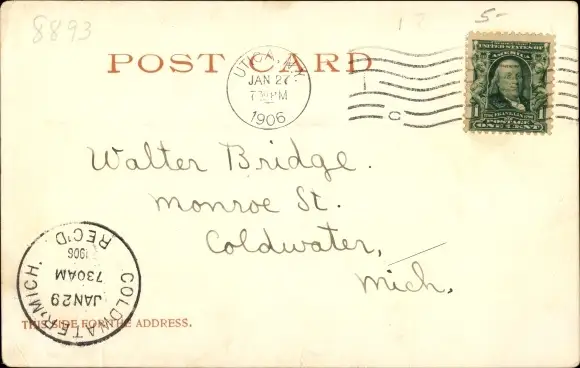 8893
5-
POST CARD
UTICA, N.Y.
JAN 27
7 30 PM
1906
C
UNITED STATES OF
AMERICA
FRANKLIN
1 POSTAGE 1
ONE CENT
Walter Bridge.
Monroe St.
Coldwater,
Mich.
COLDWATER, MICH.
JAN 29
730AM
1906
REC'D
THIS SIDE FOR THE ADDRESS.